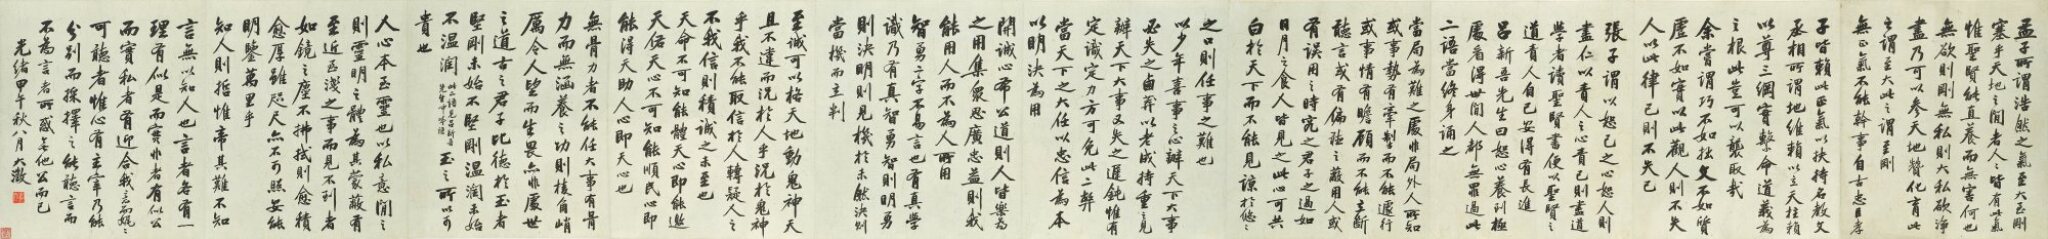 孟子所謂浩然之氣至大至剛
塞乎天地之間者人人皆有此氣
惟聖賢能直養而無害何也
無欲則剛無私則大私欲淨
盡乃可以參天地贊化育此
之謂至大此之謂至剛
無正氣不能幹事自古忠臣孝
子皆賴此正氣以扶持名教文
丞相所謂地維賴以立天柱賴
以尊三綱實繫命道義為
之根此豈可以襲取哉
余嘗謂巧不如拙文不如質
虛不如實以此觀人則不失
人以此律己則不失己
張子謂以恕己之心恕人則
盡仁以責人之心責己則盡道
學者讀聖賢書便以聖賢之
道責人自己安得有長進
呂新吾先生曰恕心養到極
處看得世間人都無罪過此
二語當終身誦之
當局為難之處非局外人所知
或事勢有牽掣而不能遽行
或事情有瞻顧而不能立斷
聽言或有偏聽之蔽用人或
有誤用之時究之君子之過如
日月之食人皆見之此心可共
白於天下而不能見諒於悠悠
之口則任事之難也
以少年喜事之心辦天下大事
必失之鹵莽以老成持重之見
辦天下大事又失之遲鈍惟有
定識定力方可免此二弊
當天下之大任以忠信為本
以明決為用
開誠心布公道則人皆樂為
之用集眾思廣忠益則我
能用人而不為人所用
智勇二字不易言也有真學
識乃有真智勇智則明勇
則決明則見機於未然決則
當機而立判
至誠可以格天地動鬼神天
且不違而況於人乎況於鬼神
乎我不能取信於人轉疑人之
不我信則積誠之未至也
天命不可知能體天心即能邀
天佑天心不可知能順民心即
能得天助人心即天心也
無骨力者不能任大事有骨
力而無涵養之功則稜角峭
厲令人望而生畏亦非處世
之道古之君子比德於玉者
堅剛未始不堅剛溫潤未始
不溫潤 玉之所以可
貴也
人心本至靈也以私意間之
則靈明之體為其蒙蔽有
至近至淺之事而見不到者
如鏡之塵不拂拭則愈積
愈厚雖咫尺亦不可照安能
明鑒萬里乎
知人則哲惟帝其難不知
言無以知人也言者各有一
理有似是而實非者有似公
而實私者有迎合我言而娓娓
可聽者惟心有主宰乃能
分別而採擇之能聽言而
不為言者所惑者他公而已
光緒甲午秋八月大澂